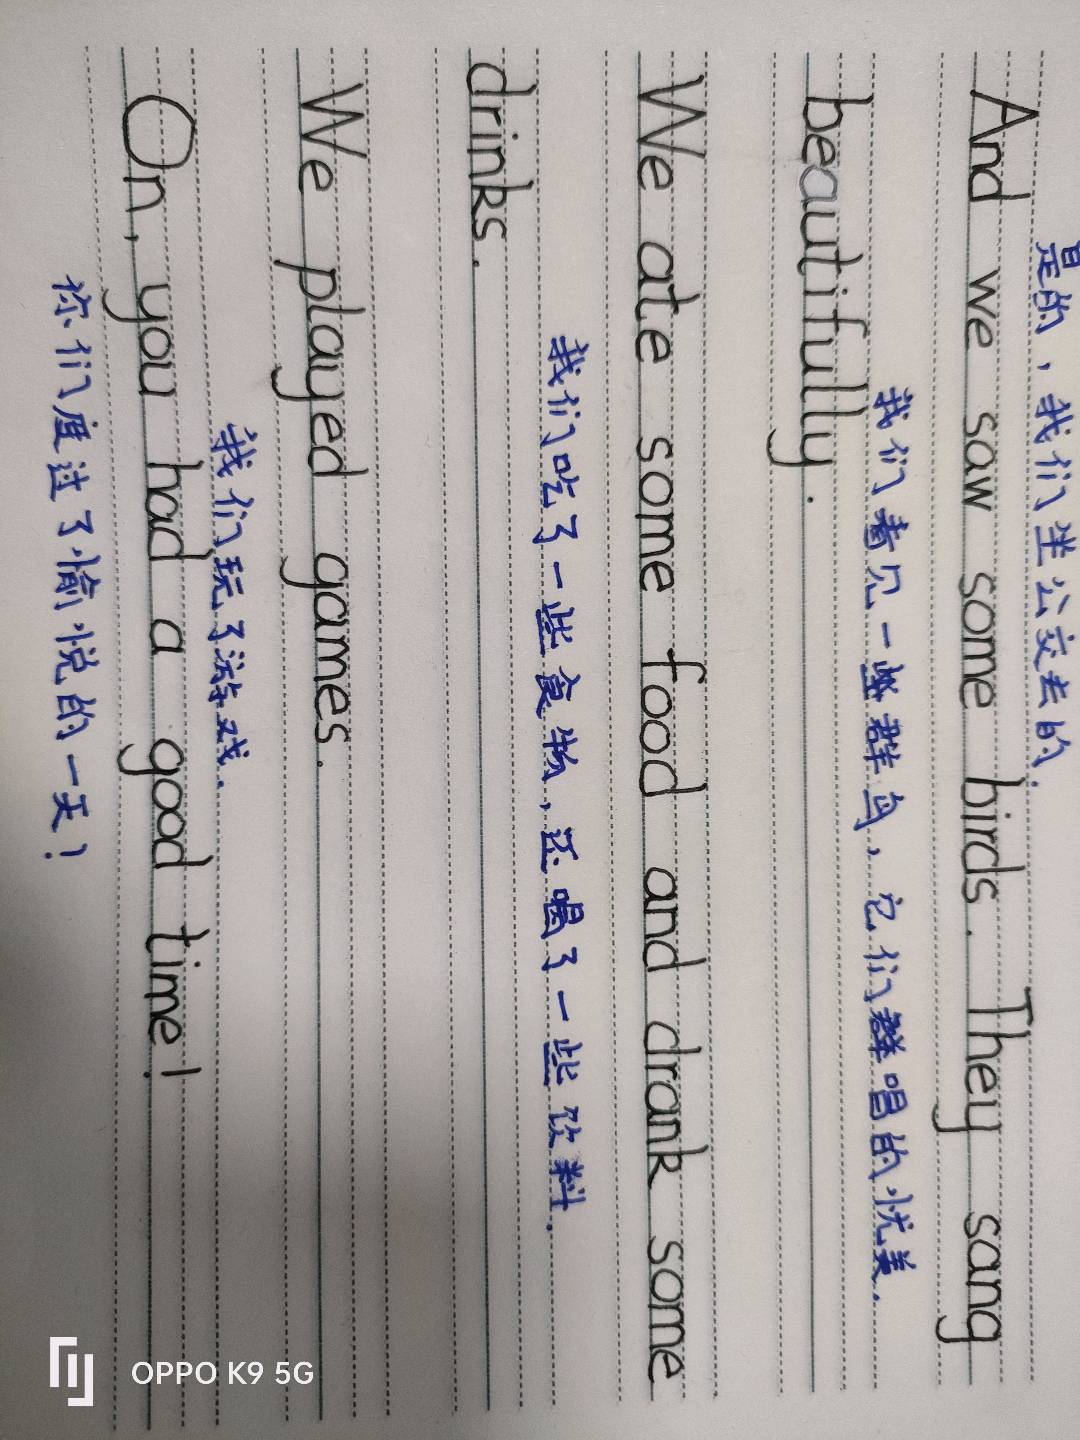 是的，我们坐公交去的.
And we saw some birds. They sang
我们看见一些群鸟，它们群唱的忧美.
beautifully.
We ate some food and drank some
我们吃了一些食物，还喝了一些饮料.
drinks.
We played games.
我们玩了游戏.
On, you had a good time!
你们度过了愉悦的一天!
OPPO K9 5G